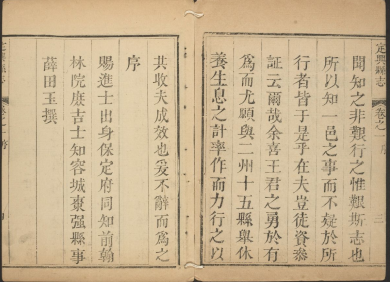 聞知之非艱行之惟艱斯志也
所以知一邑之事而不疑於所
行者皆于是乎在夫豈徒資叅
証云爾哉余喜王君之勇於有
爲而尤願與二州十五縣舉休
養生息之計率作而力行之以
共收夫成效也爰不辭而爲之
序
賜進士出身保定府同知前翰
林院庶吉士知容城棗强縣事
薛田玉撰
定興縣志
卷之
序
定興縣志
卷之
序